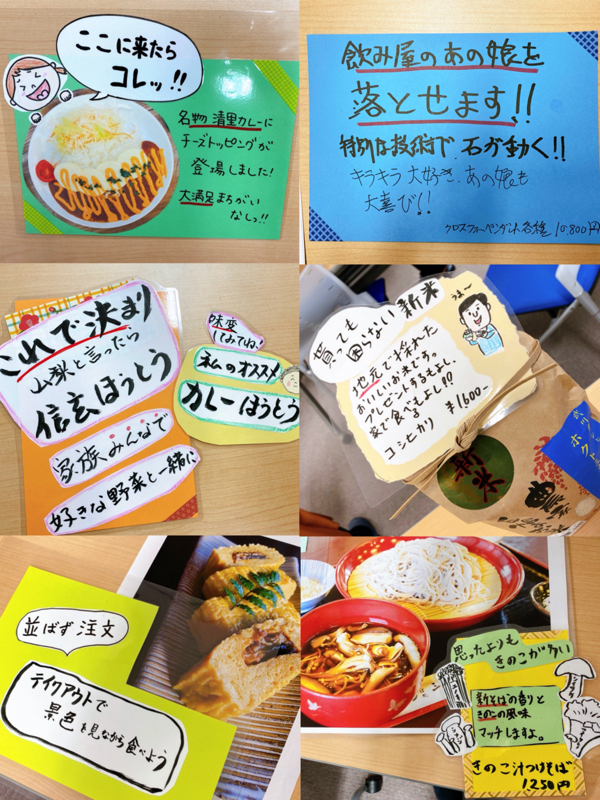 ここに来たら
コレッ!!
名物 清里カレーに
チーズトッピングが
登場しました!
大満足まちがい
なしっ!!
飲み屋のあの娘を
落とせます!!
特別な技術で、石が動く!!
キラキラ大好き、あの娘も
大喜び!!
クロスフォーペンダント各種 10,800円
これで決まり
山梨と言ったら
信玄ほうとう
家族みんなで
好きな野菜と一緒に
味変
してみてね!
私のオススメ
カレーほうとう
貰っても
困らない新米
地元で採れた
おいしいお米です。
プレゼントするもよし、
家で食べるもよし!?
コシヒカリ ¥1,600-
新米
並ばず注文
テイクアウトで
景色を見ながら食べよう
思ったよりも
きのこが多い
新そばの香りと
きのこの風味
マッチしますよ。
きのこ汁つけそば
1,250円